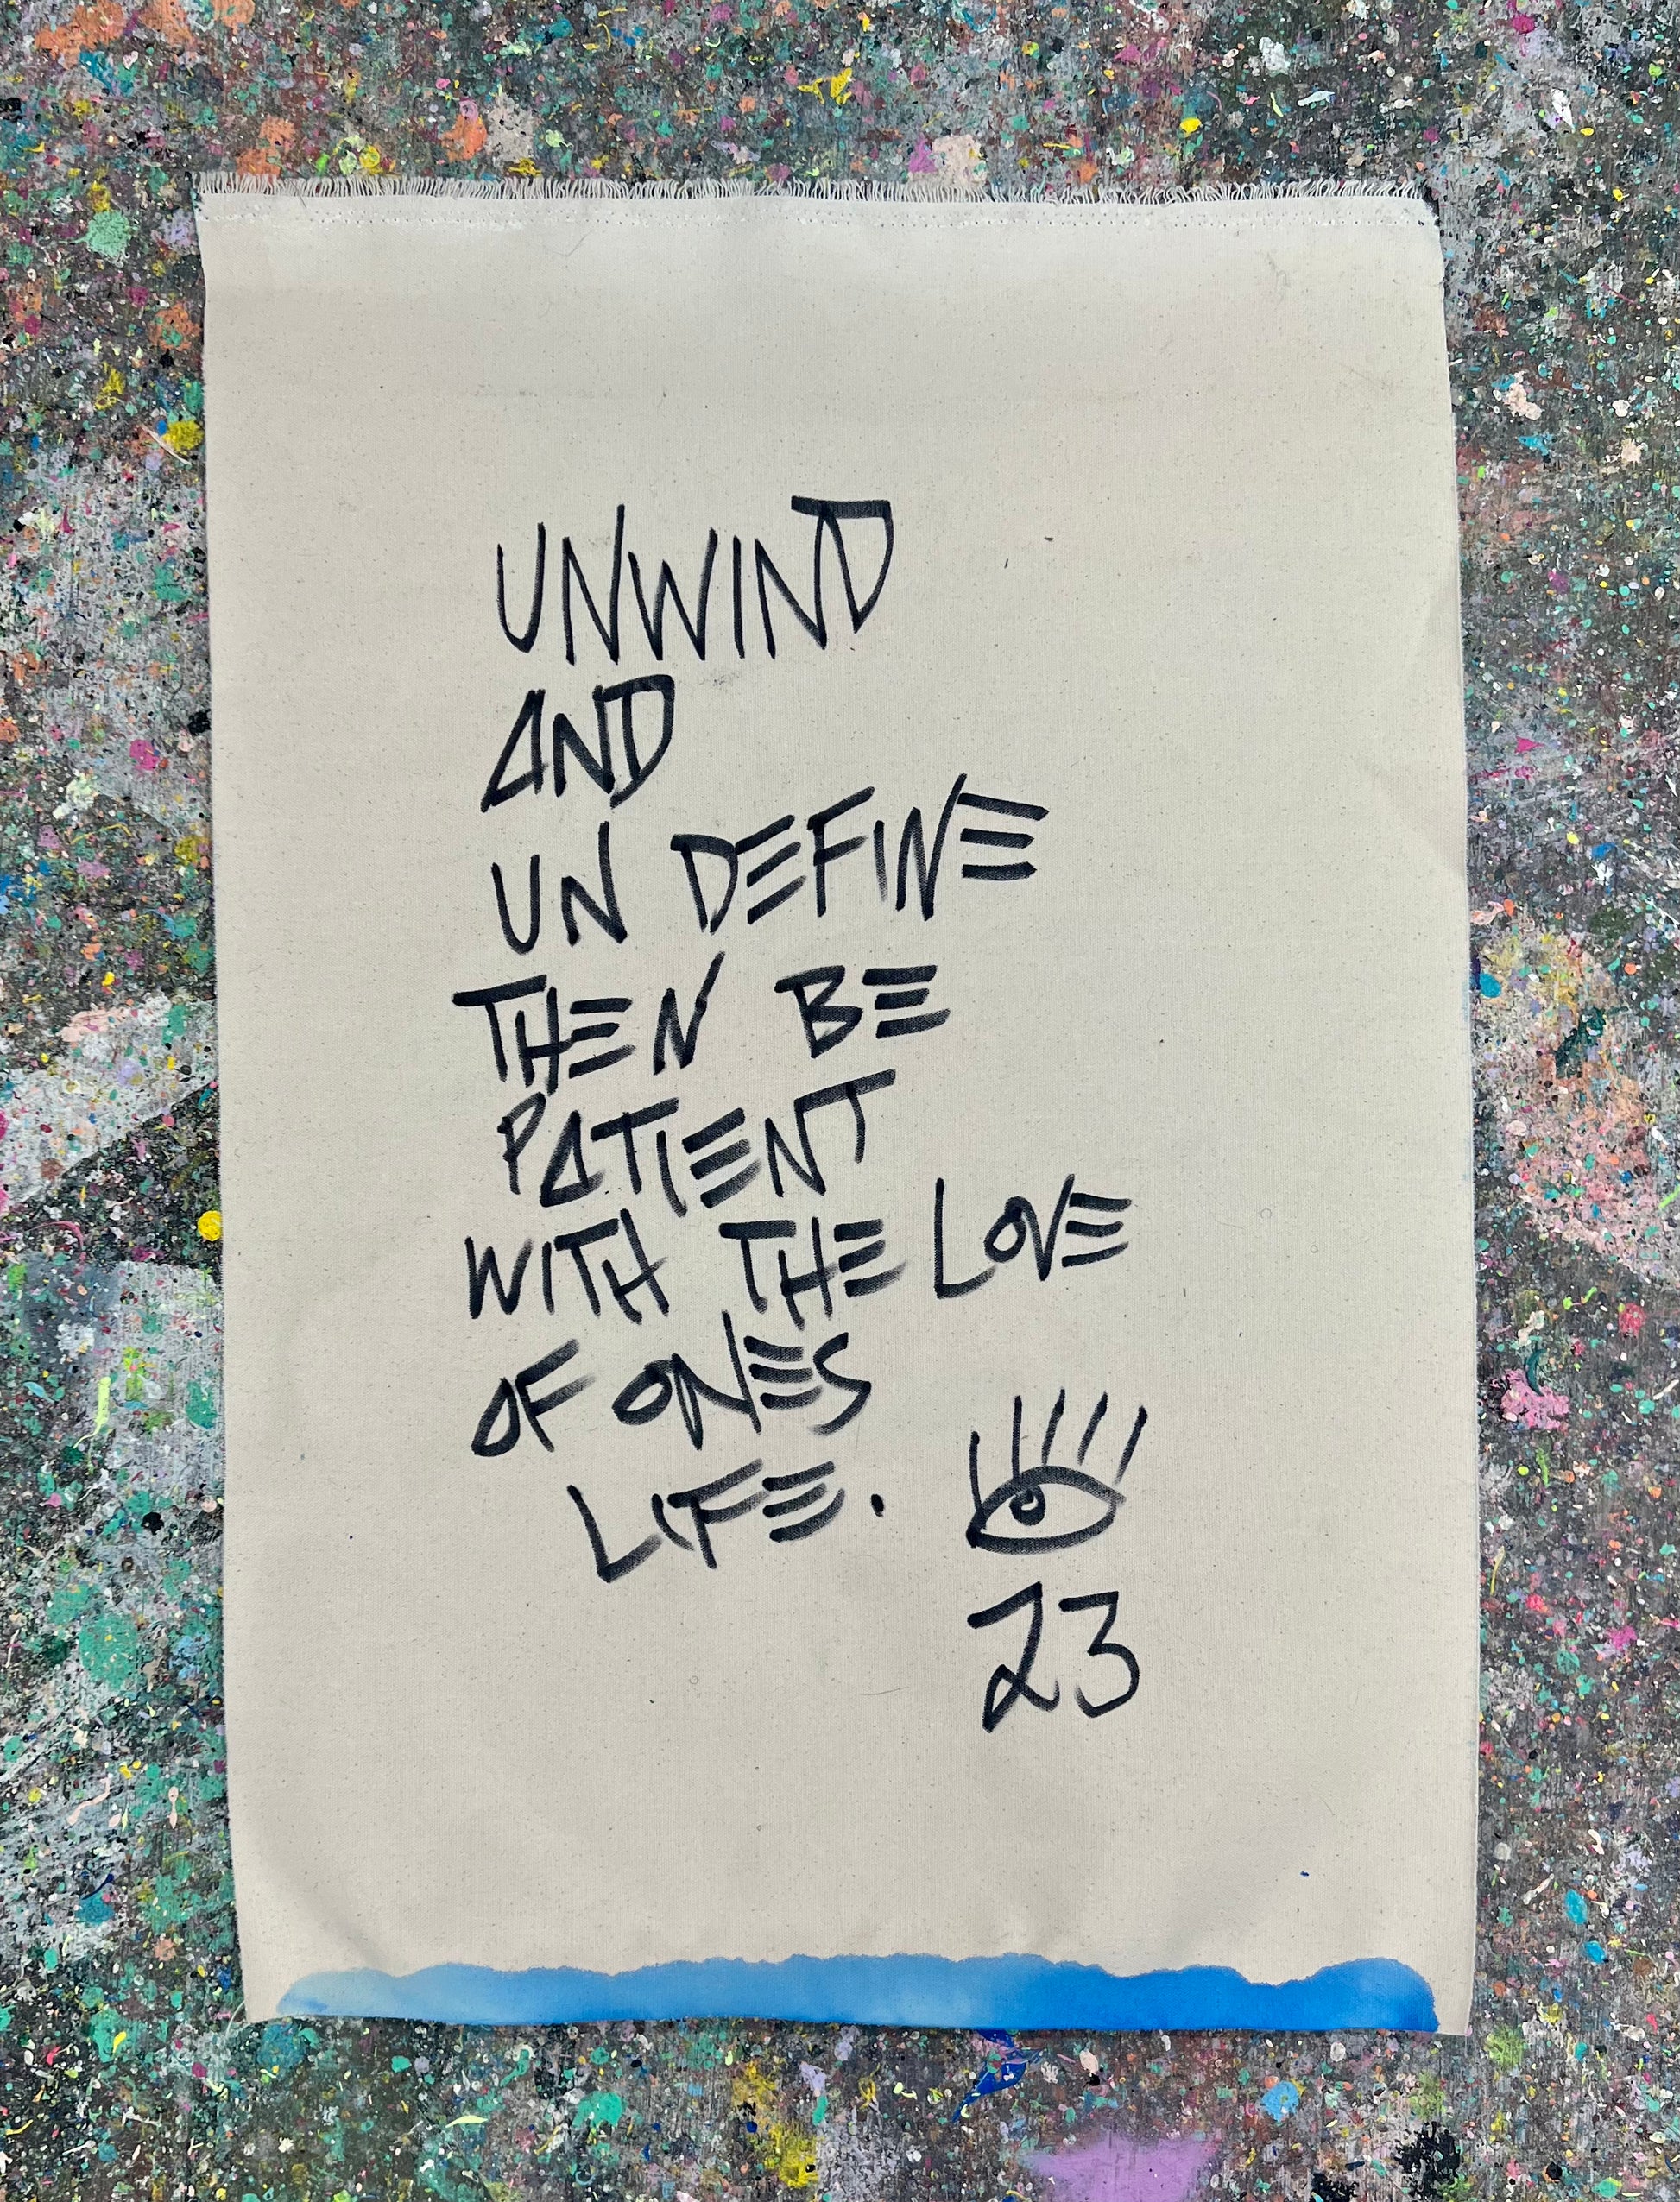 UNWIND
AND
UN DEFINE
THEN BE
PATIENT
WITH THE LOVE
OF ONES
LIFE.
23